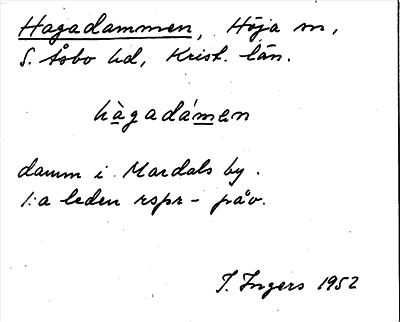 Hagadammen, Höja sn,
S. Åsbo hd, Krist. län.
hàgadámen
damm i Mardals by.
1:a leden rspr-påv.
I. Ingers 1952